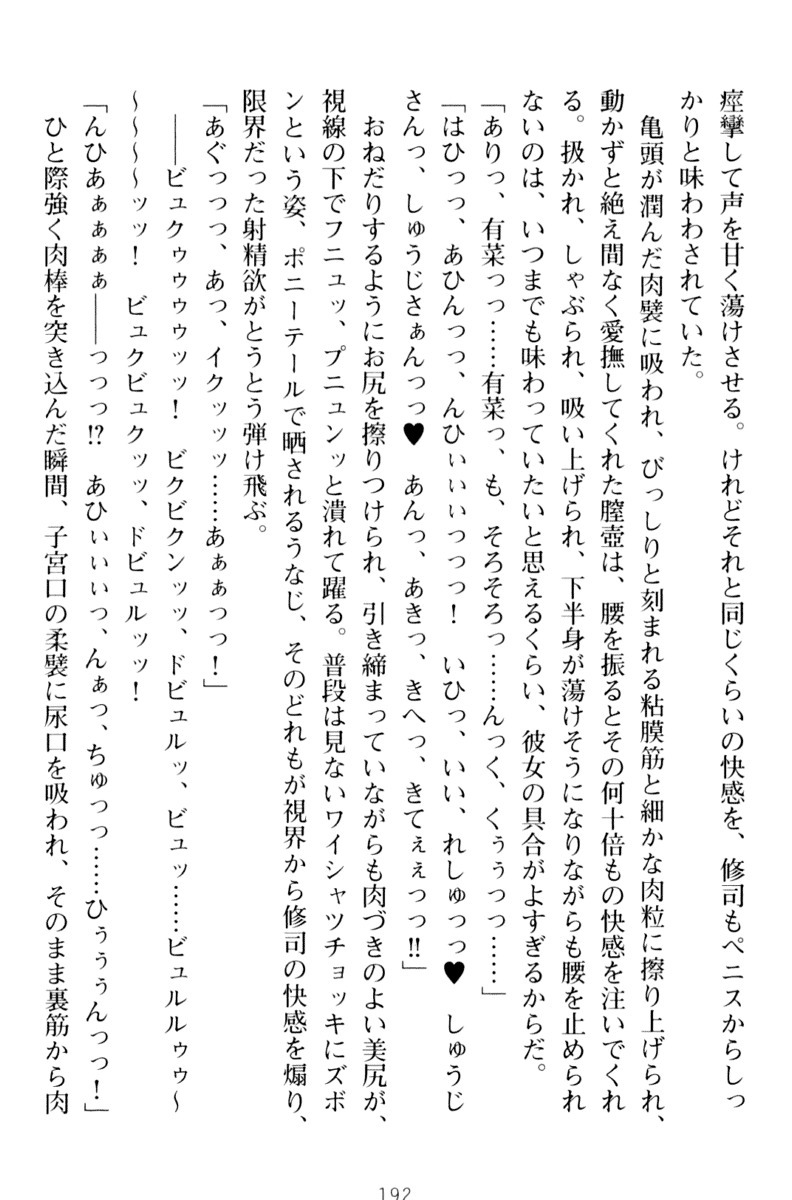 痙攣して声を甘く蕩けさせる。けれどそれと同じくらいの快感を、修司もペニスからしっ
かりと味わわされていた。
亀頭が潤んだ肉襞に吸われ、びっしりと刻まれる粘膜筋と細かな肉粒に擦り上げられ、
動かずと絶え間なく愛撫してくれた膣壺は、腰を振るとその何十倍もの快感を注いでくれ
る。扱かれ、しゃぶられ、吸い上げられ、下半身が蕩けそうになりながらも腰を止められ
ないのは、いつまでも味わっていたいと思えるくらい、彼女の具合がよすぎるからだ。
「ありっ、有菜っっ……有菜っ、も、そろそろっ……んっく、くぅぅっっ……」
「はひっっ、あひんっっ、んひぃぃぃっっっ！　いひっ、いい、れしゅっっ♥　しゅうじ
さんっ、しゅうじさぁんっっ♥　あんっ、あきっ、きへっ、きてぇぇっっ!!」
おねだりするようにお尻を擦りつけられ、引き締まっていながらも肉づきのよい美尻が、
視線の下でフニュッ、プニュンッと潰れて躍る。普段は見ないワイシャツチョッキにズボ
ンという姿、ポニーテールで晒されるうなじ、そのどれもが視界から修司の快感を煽り、
限界だった射精欲がとうとう弾け飛ぶ。
「あぐっっっ、あっ、イクッッッ……あぁぁっっ！」
――ビュクゥゥゥゥッッ！　ビクビクンッッ、ドビュルッ、ビュッ……ビュルルゥゥ～
～～～～ッッ！　ビュクビュクッッ、ドビュルッッ！
「んひあぁぁぁぁ――っっっ!?　あひぃぃぃっ、んぁっ、ちゅっっ……ひぅぅぅんっっ！」
ひと際強く肉棒を突き込んだ瞬間、子宮口の柔襞に尿口を吸われ、そのまま裏筋から肉
192